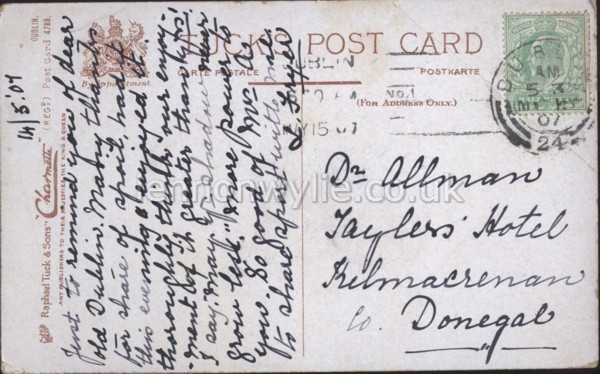 TUCK'S POST CARD
CARTE POSTALE
POSTKARTE
(For Address Only.)
By Appointment.
DUBLIN.
(REGD) Post Card 4785.
Raphael Tuck & Sons' "Charmette"
ART PUBLISHERS TO THEIR MAJESTIES THE KING & QUEEN.
14/5/07
Just to remind you of dear
old Dublin. Many thanks
for share of spoil, had it
this evening & enjoyed it
thoroughly thanks, our enjoy-
ment of it greater than yrs!
I say "may shadow never
grow less" & more power to
you. So good of Mrs. A.
to share spoil with me.
Dr. Allman
Taylers' Hotel
Kilmacrenan
Co. Donegal
DUBLIN
MY 15 07
No. 1
AM
5.3
MY 15
07
24
lennonwylie.co.uk